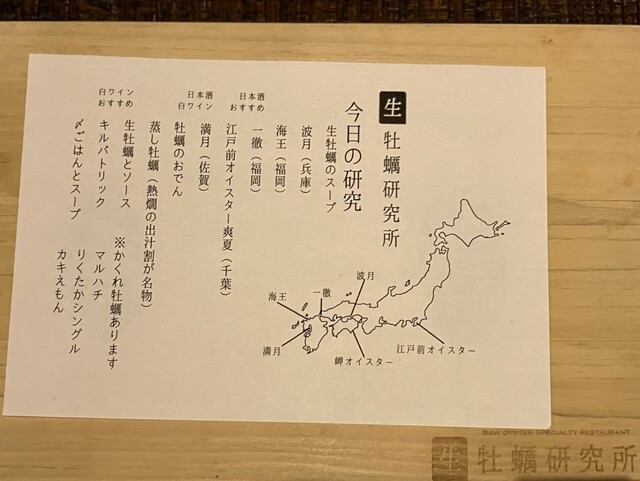 生 牡蠣研究所
今日の研究
生牡蠣のスープ
波月（兵庫）
海王（福岡）
日本酒
おすすめ
一徹（福岡）
江戸前オイスター爽夏（千葉）
日本酒
白ワイン
満月（佐賀）
牡蠣のおでん
蒸し牡蠣（熱燗の出汁割が名物）
白ワイン
おすすめ
生牡蠣とソース
キルパトリック
〆ごはんとスープ
※かくれ牡蠣あります
マルハチ
りくたかシングル
カキえもん
波月
一徹
海王
満月
岬オイスター
江戸前オイスター
RAW OYSTER SPECIALTY RESTAURANT
生 牡蠣研究所